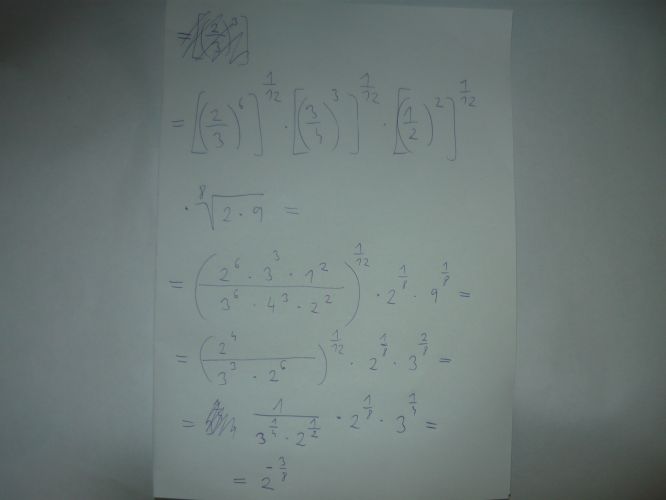 = [(2/3)^6]^(1/12) · [(3/4)^3]^(1/12) · [(1/2)^2]^(1/12)
· ⁸√(2·9) =
= ((2^6 · 3^3 · 1^2)/(3^6 · 4^3 · 2^2))^(1/12) · 2^(1/8) · 9^(1/8) =
= (2^4/(3^3 · 2^6))^(1/12) · 2^(1/8) · 3^(2/8) =
= 1/(3^(1/4) · 2^(1/2)) · 2^(1/8) · 3^(1/4) =
= 2^(-3/8)